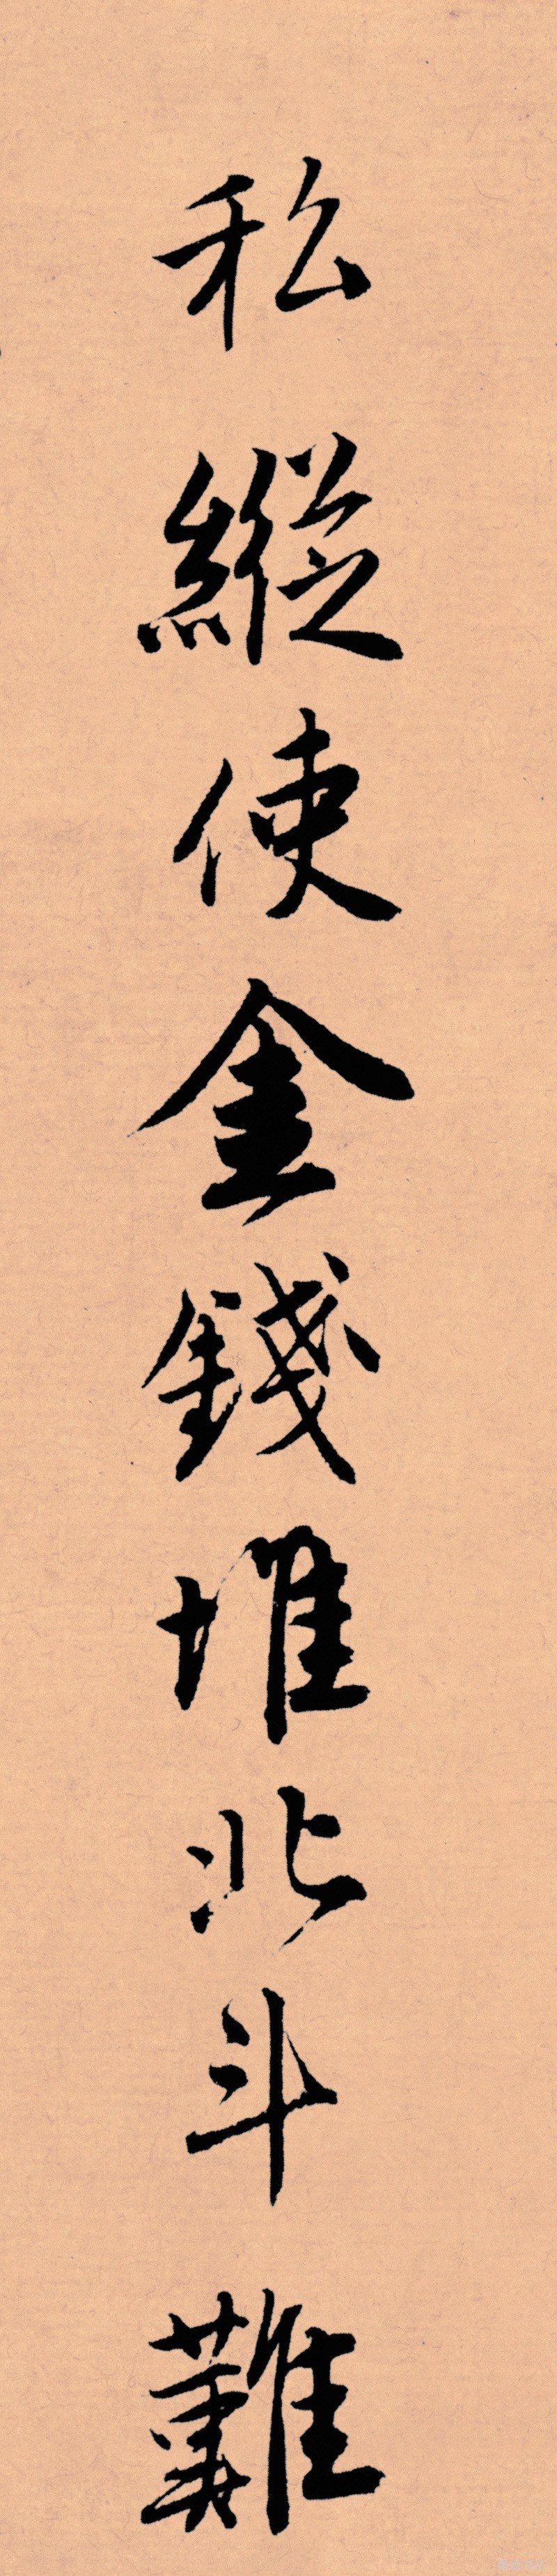 私縱使金錢堆北斗難